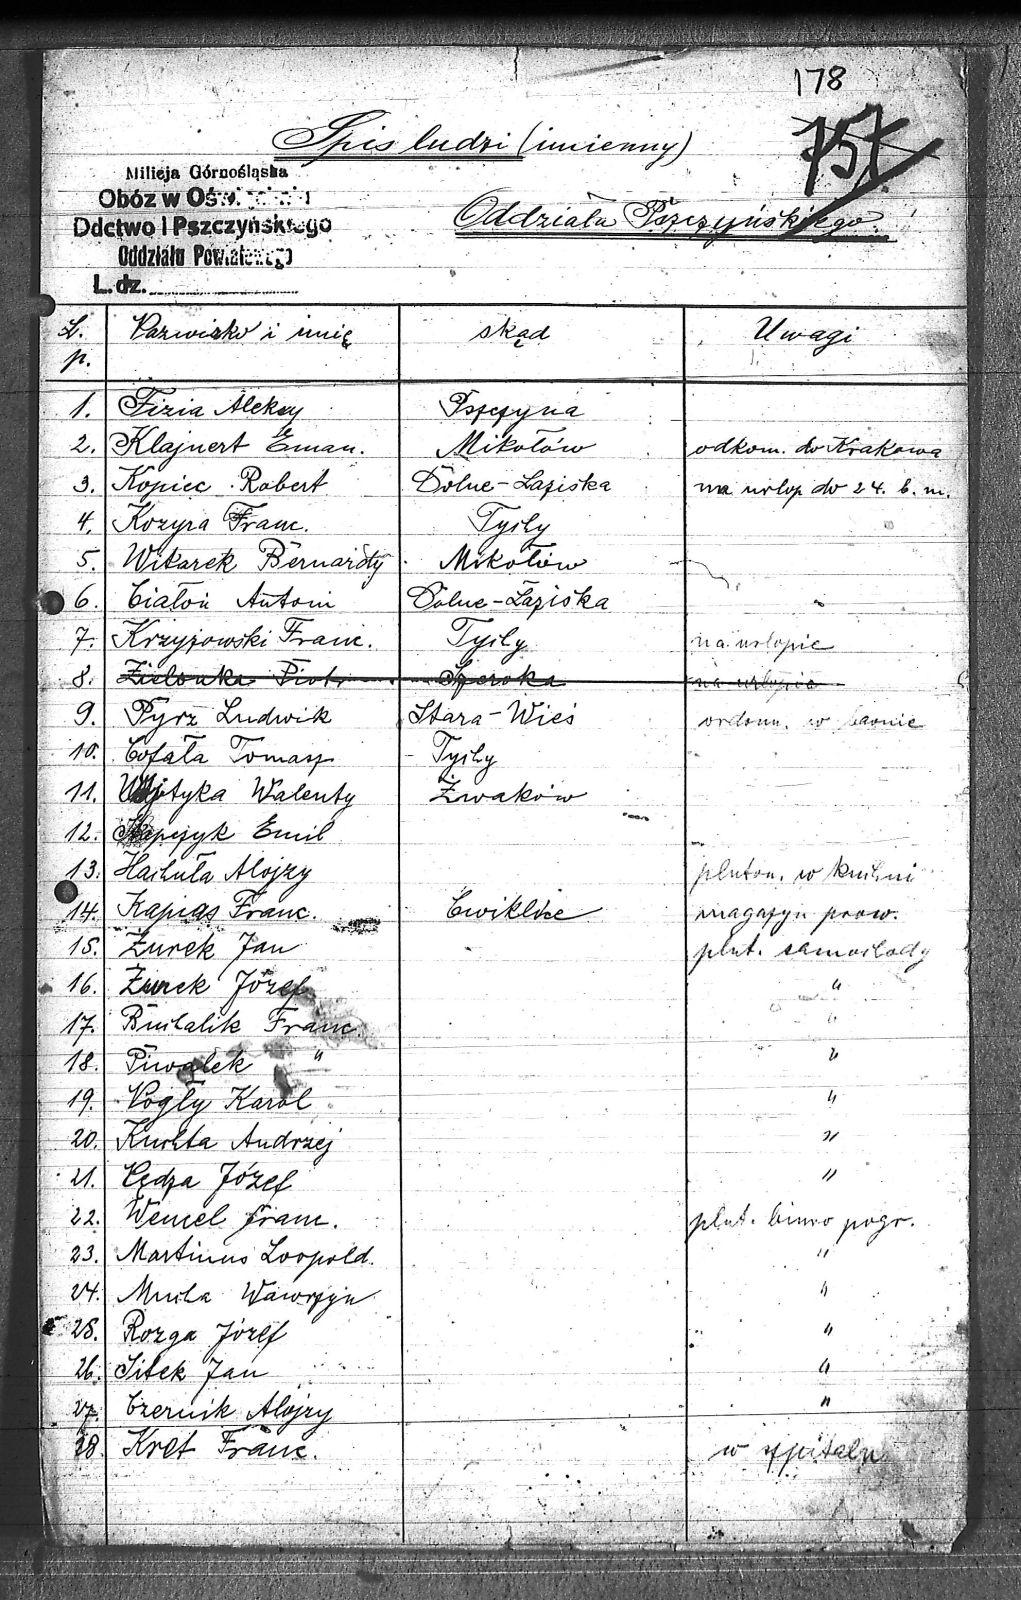 178
Spis ludzi (imienny)
757
Milicja Górnośląska
Obóz w
Ddctwo I Pszczyńskiego
Oddziału Powiatowego
L. dz.
Oddziała Pszczyńskiego.
L. p. Nazwisko i imię skąd Uwagi
1. Fizia Aleksy Pszczyna
2. Klajnert Eman. Mikołów odkom. do Krakowa
3. Kopiec Robert Dolne-Łaziska na urlop do 24. b. m.
4. Kozyra Franc. Tychy
5. Witarek Bernardy Mikołów
6. Białoń Antoni Dolne-Łaziska
7. Krzyżowski Franc. Tychy na urlopie
8. Zielonka Piotr Szeroka na urlopie
9. Pyrz Ludwik Stara-Wieś ordonn. w
10. Cofała Tomasz Tychy
11. Wojtyka Walenty Żwaków
12. Emil
13. Hachuła Alojzy pluton. w kuchni
14. Kapias Franc. Cwiklice magazyn prow.
15. Żurek Jan plut. samochody
16. Żurek Józef "
17. Buchalik Franc. "
18. Piwalek " "
19. Nogły Karol "
20. Kuchta Andrzej "
21. Nędza Józef "
22. Wencel Franc. plut. biuro pogr.
23. Martinus Leopold. "
24. Mucha Wawrzyn "
25. Rozga Józef "
26. Sitek Jan "
27. Czernik Alojzy "
28. Kret Franc. w szpitalu